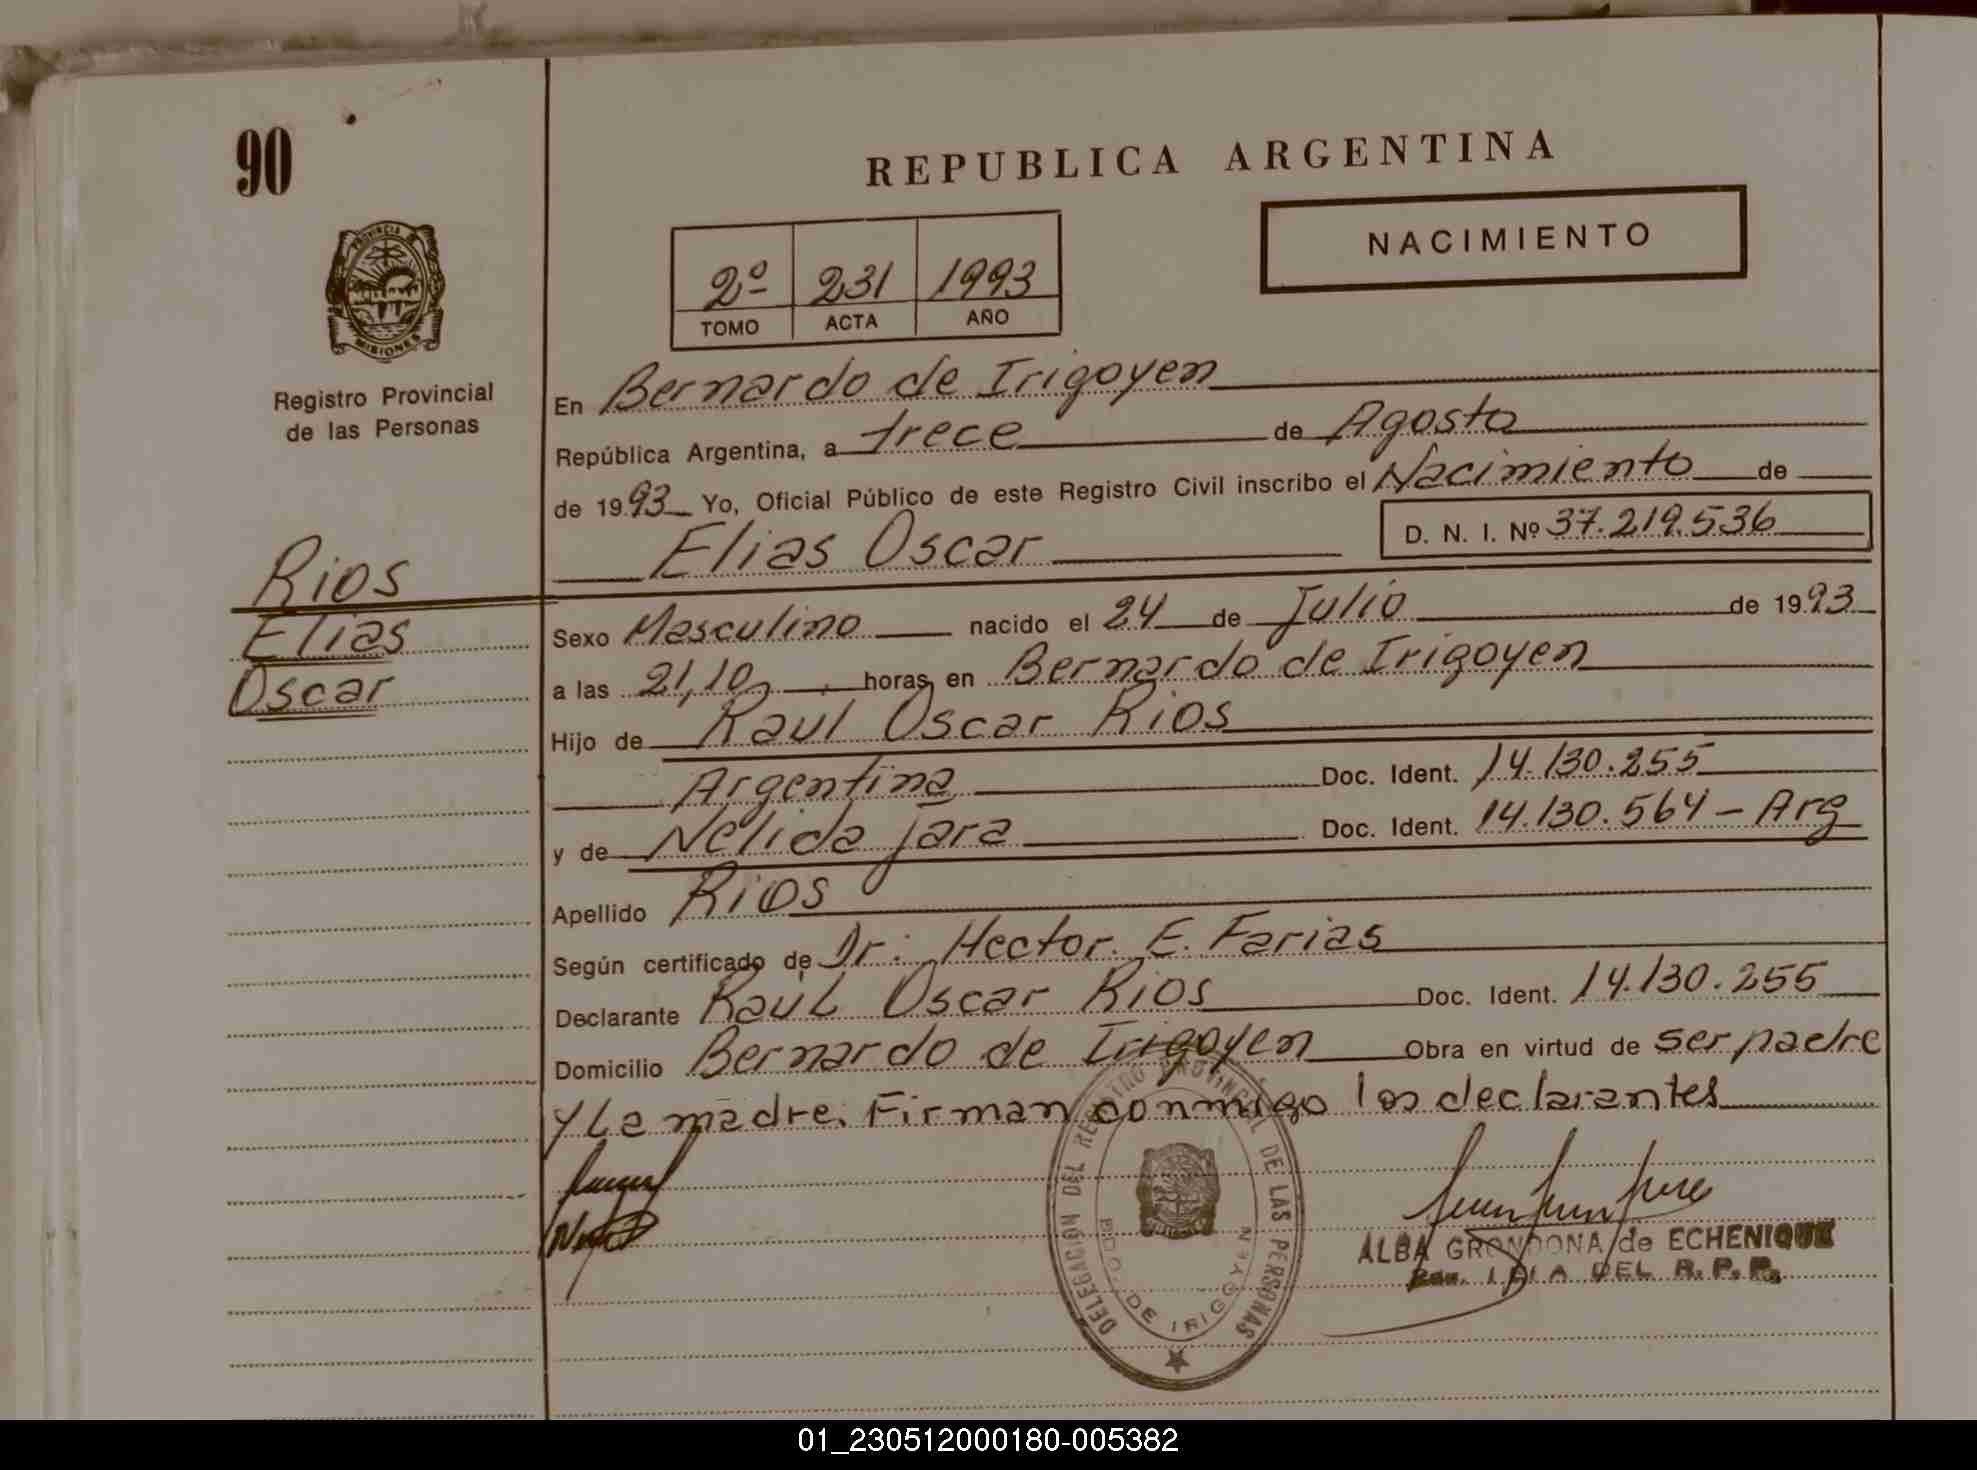 90
REPUBLICA ARGENTINA
NACIMIENTO
2º 231 1993
TOMO ACTA AÑO
PROVINCIA DE
MISIONES
Registro Provincial
de las Personas
En Bernardo de Irigoyen
República Argentina, a trece de Agosto
de 1993 Yo, Oficial Público de este Registro Civil inscribo el Nacimiento de
Elias Oscar D. N. I. Nº 37.219.536
Rios
Elias
Oscar
Sexo Masculino nacido el 24 de Julio de 1993
a las 21,10 horas en Bernardo de Irigoyen
Hijo de Raul Oscar Rios
Argentina Doc. Ident. 14.130.255
y de Nelida jara Doc. Ident. 14.130.564 - Arg
Apellido Rios
Según certificado de Dr: Hector. E. Farias
Declarante Raúl Oscar Rios Doc. Ident. 14.130.255
Domicilio Bernardo de Irigoyen Obra en virtud de ser padre
y La madre. Firman conmigo los declarantes
DELEGACION DEL REGISTRO PROVINCIAL DE LAS PERSONAS
BDO. DE IRIGOYEN
ALBA GRONDONA de ECHENIQUE
DEL R. P. P.
01_230512000180-005382